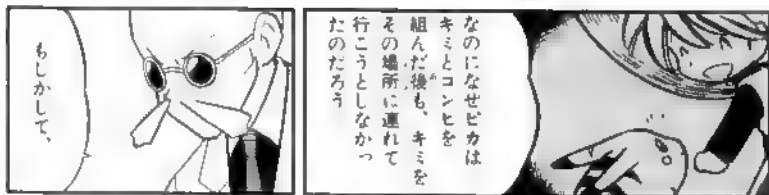 なのになぜピカは
キミとコンビを
組んだ後も、キミを
その場所に連れて
行こうとしなかっ
たのだろう
もしかして、